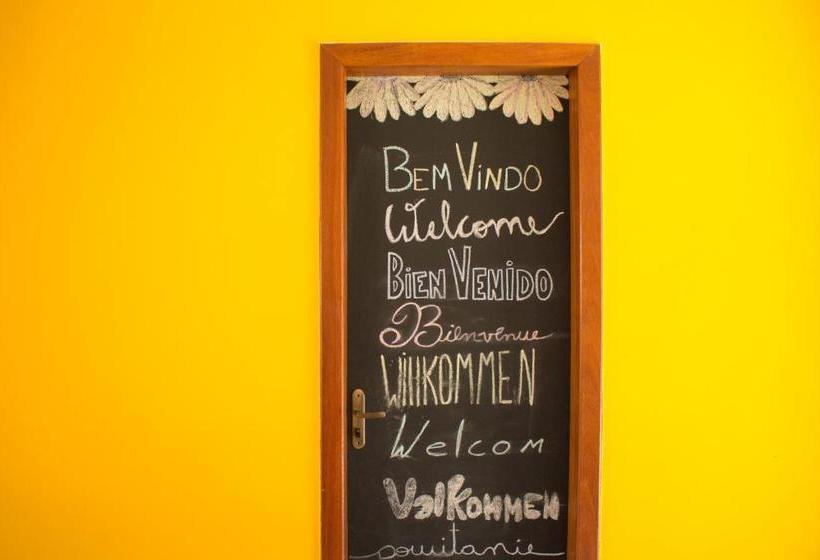 BEM VINDO
Welcome
BiEN VENiDO
Bienvenue
WillKOMMEN
Welcom
ValKOMMEN
powitanie